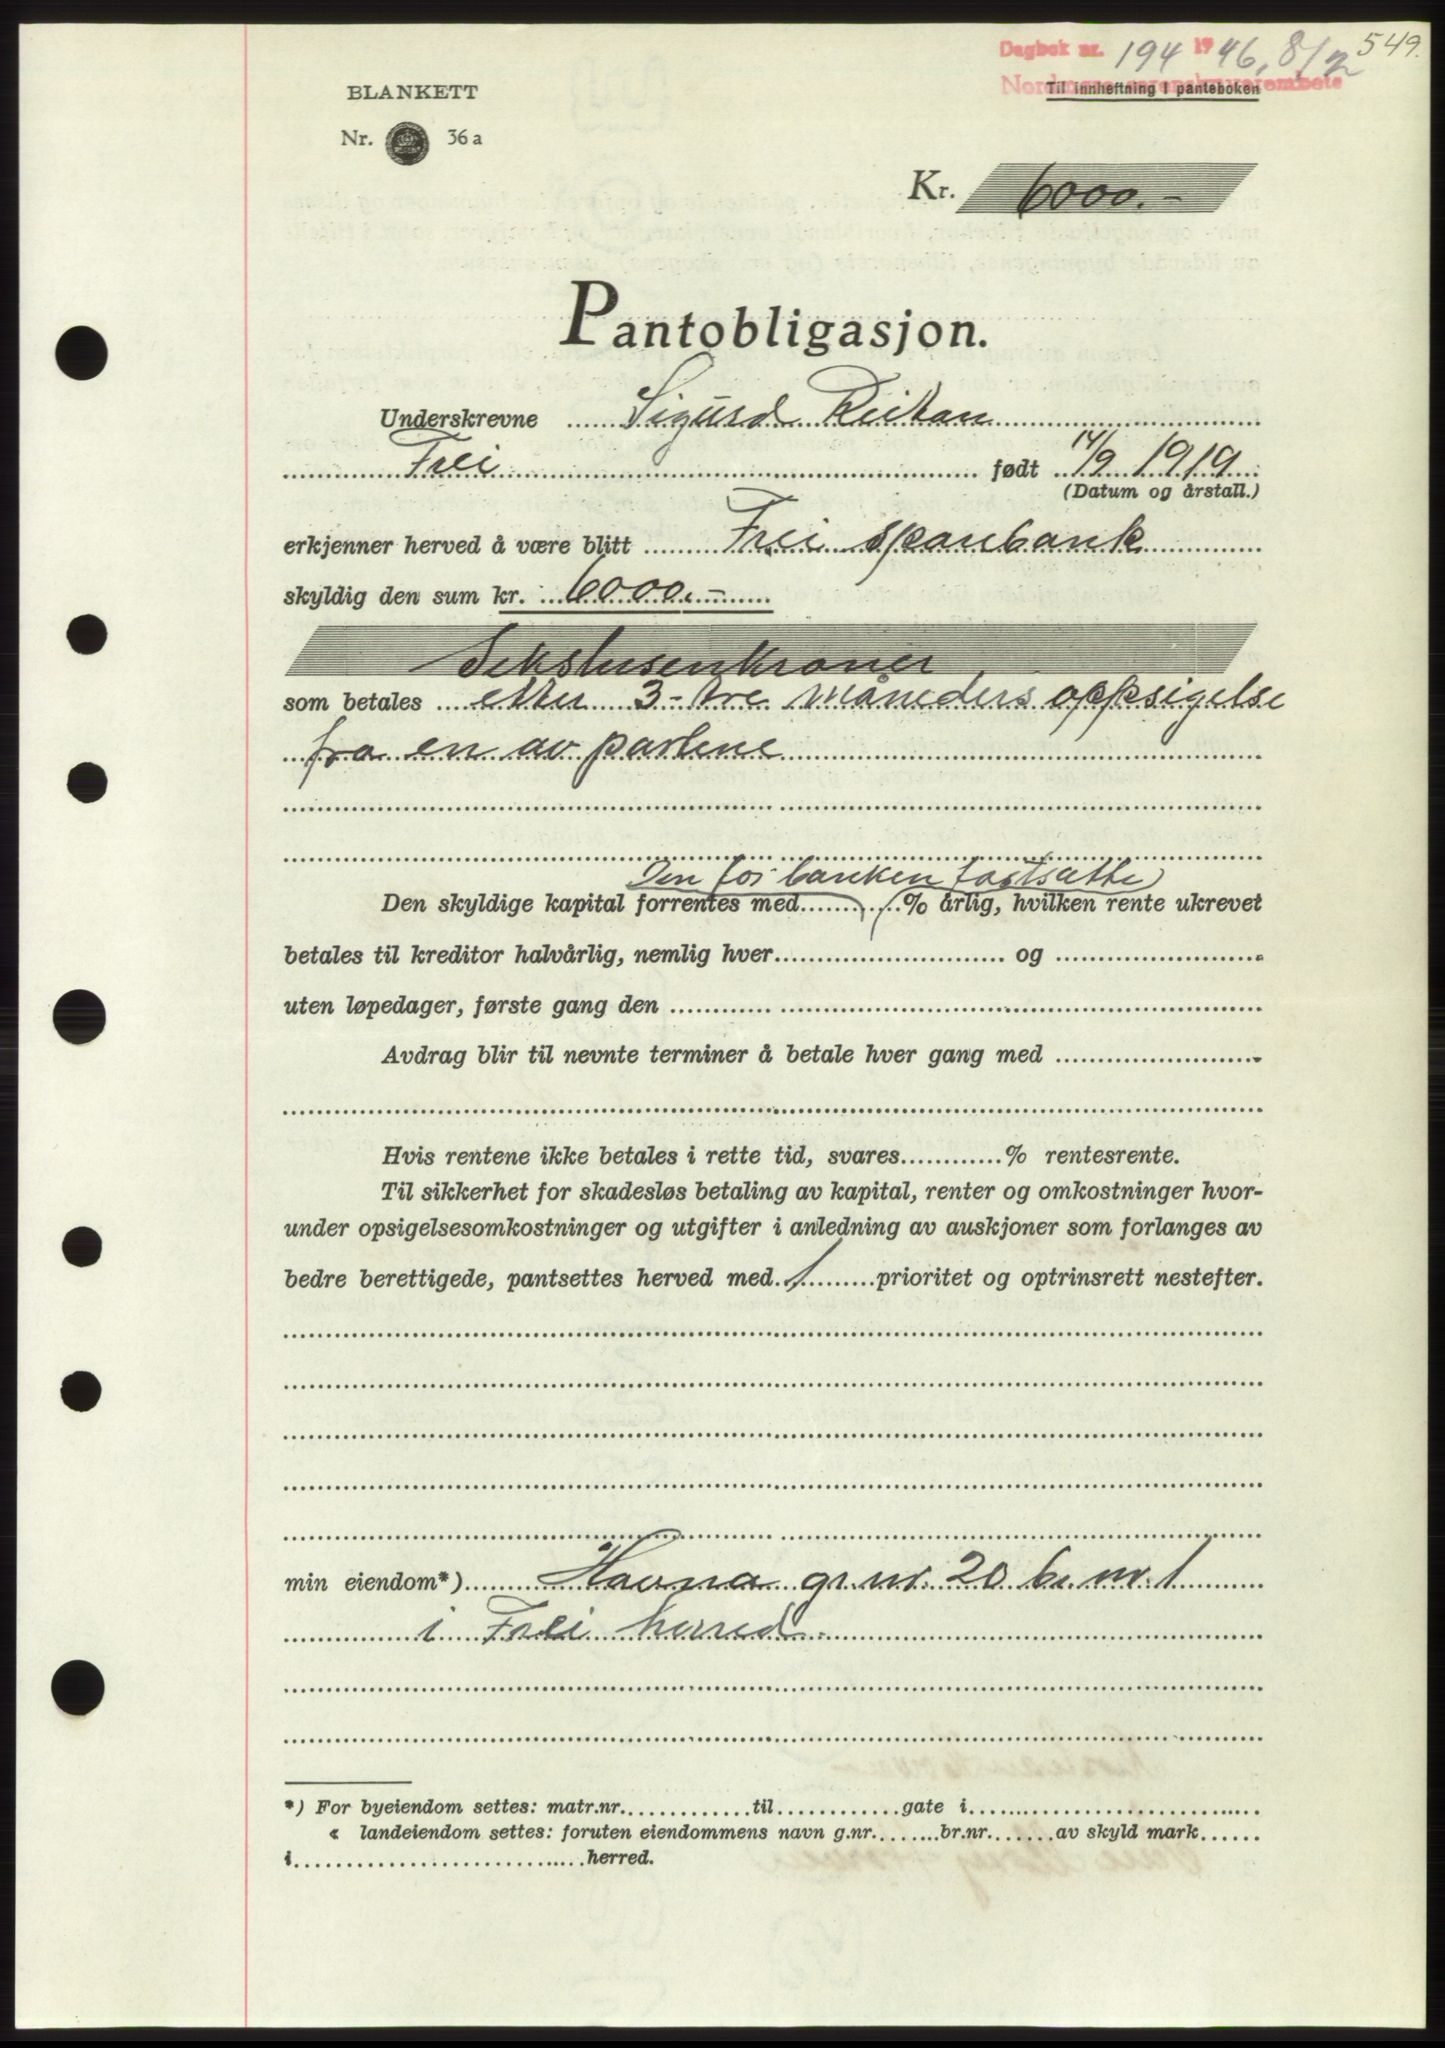 549.
Dagbok nr. 194 1946, 8/2
Nordmøre sorenskriverembete
Til innheftning i panteboken
BLANKETT
Nr. 36 a
Kr. 6000.-
Pantobligasjon.
Underskrevne Sigurd Reitan
Frei født 14/9 1919
(Datum og årstall.)
erkjenner herved å være blitt Frei sparebank
skyldig den sum kr. 6000.-
Sekstusenkroner
som betales etter 3-tre måneders oppsigelse
fra en av partene
Den for banken fastsatte
Den skyldige kapital forrentes med % årlig, hvilken rente ukrevet
betales til kreditor halvårlig, nemlig hver og
uten løpedager, første gang den
Avdrag blir til nevnte terminer å betale hver gang med
Hvis rentene ikke betales i rette tid, svares % rentesrente.
Til sikkerhet for skadesløs betaling av kapital, renter og omkostninger hvor-
under opsigelsesomkostninger og utgifter i anledning av auskjoner som forlanges av
bedre berettigede, pantsettes herved med 1 prioritet og optrinsrett nestefter.
min eiendom*) Havna gr. nr. 20 br. nr. 1
i Frei herred
*) For byeiendom settes: matr.nr. til gate i
« landeiendom settes: foruten eiendommens navn g.nr. br.nr. av skyld mark
i herred.